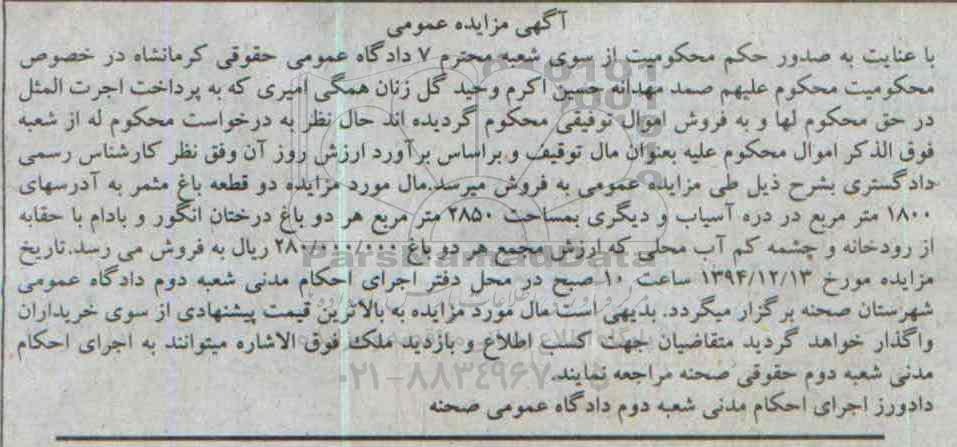 آگهی مزایده عمومی
با عنایت به صدور حکم محکومیت از سوی شعبه محترم ۷ دادگاه عمومی حقوقی کرمانشاه در خصوص
محکومیت محکوم علیهم صمد مهدانه حسین اکرم وحید گل زنان همگی امیری که به پرداخت اجرت المثل
در حق محکوم لها و به فروش اموال توقیفی محکوم گردیده اند حال نظر به درخواست محکوم له از شعبه
فوق الذکر اموال محکوم علیه بعنوان مال توقیف و براساس برآورد ارزش روز آن وفق نظر کارشناس رسمی
دادگستری بشرح ذیل طی مزایده عمومی به فروش میرسد.مال مورد مزایده دو قطعه باغ مثمر به آدرسهای
۱۸۰۰ متر مربع در دره آسیاب و دیگری بمساحت ۲۸۵۰ متر مربع هر دو باغ درختان انگور و بادام با حقابه
از رودخانه و چشمه کم آب محلی که ارزش مجمع هر دو باغ ۲۸۰/۰۰۰/۰۰۰ ریال به فروش می رسد.تاریخ
مزایده مورخ ۱۳۹۴/۱۲/۱۳ ساعت ۱۰ صبح در محل دفتر اجرای احکام مدنی شعبه دوم دادگاه عمومی
شهرستان صحنه برگزار میگردد. بدیهی است مال مورد مزایده به بالاترین قیمت پیشنهادی از سوی خریداران
واگذار خواهد گردید متقاضیان جهت کسب اطلاع و بازدید ملک فوق الاشاره میتوانند به اجرای احکام
مدنی شعبه دوم حقوقی صحنه مراجعه نمایند.
۰۲۱-۸۸۳۴۹۶۷۰
دادورز اجرای احکام مدنی شعبه دوم دادگاه عمومی صحنه
ParsNamadData